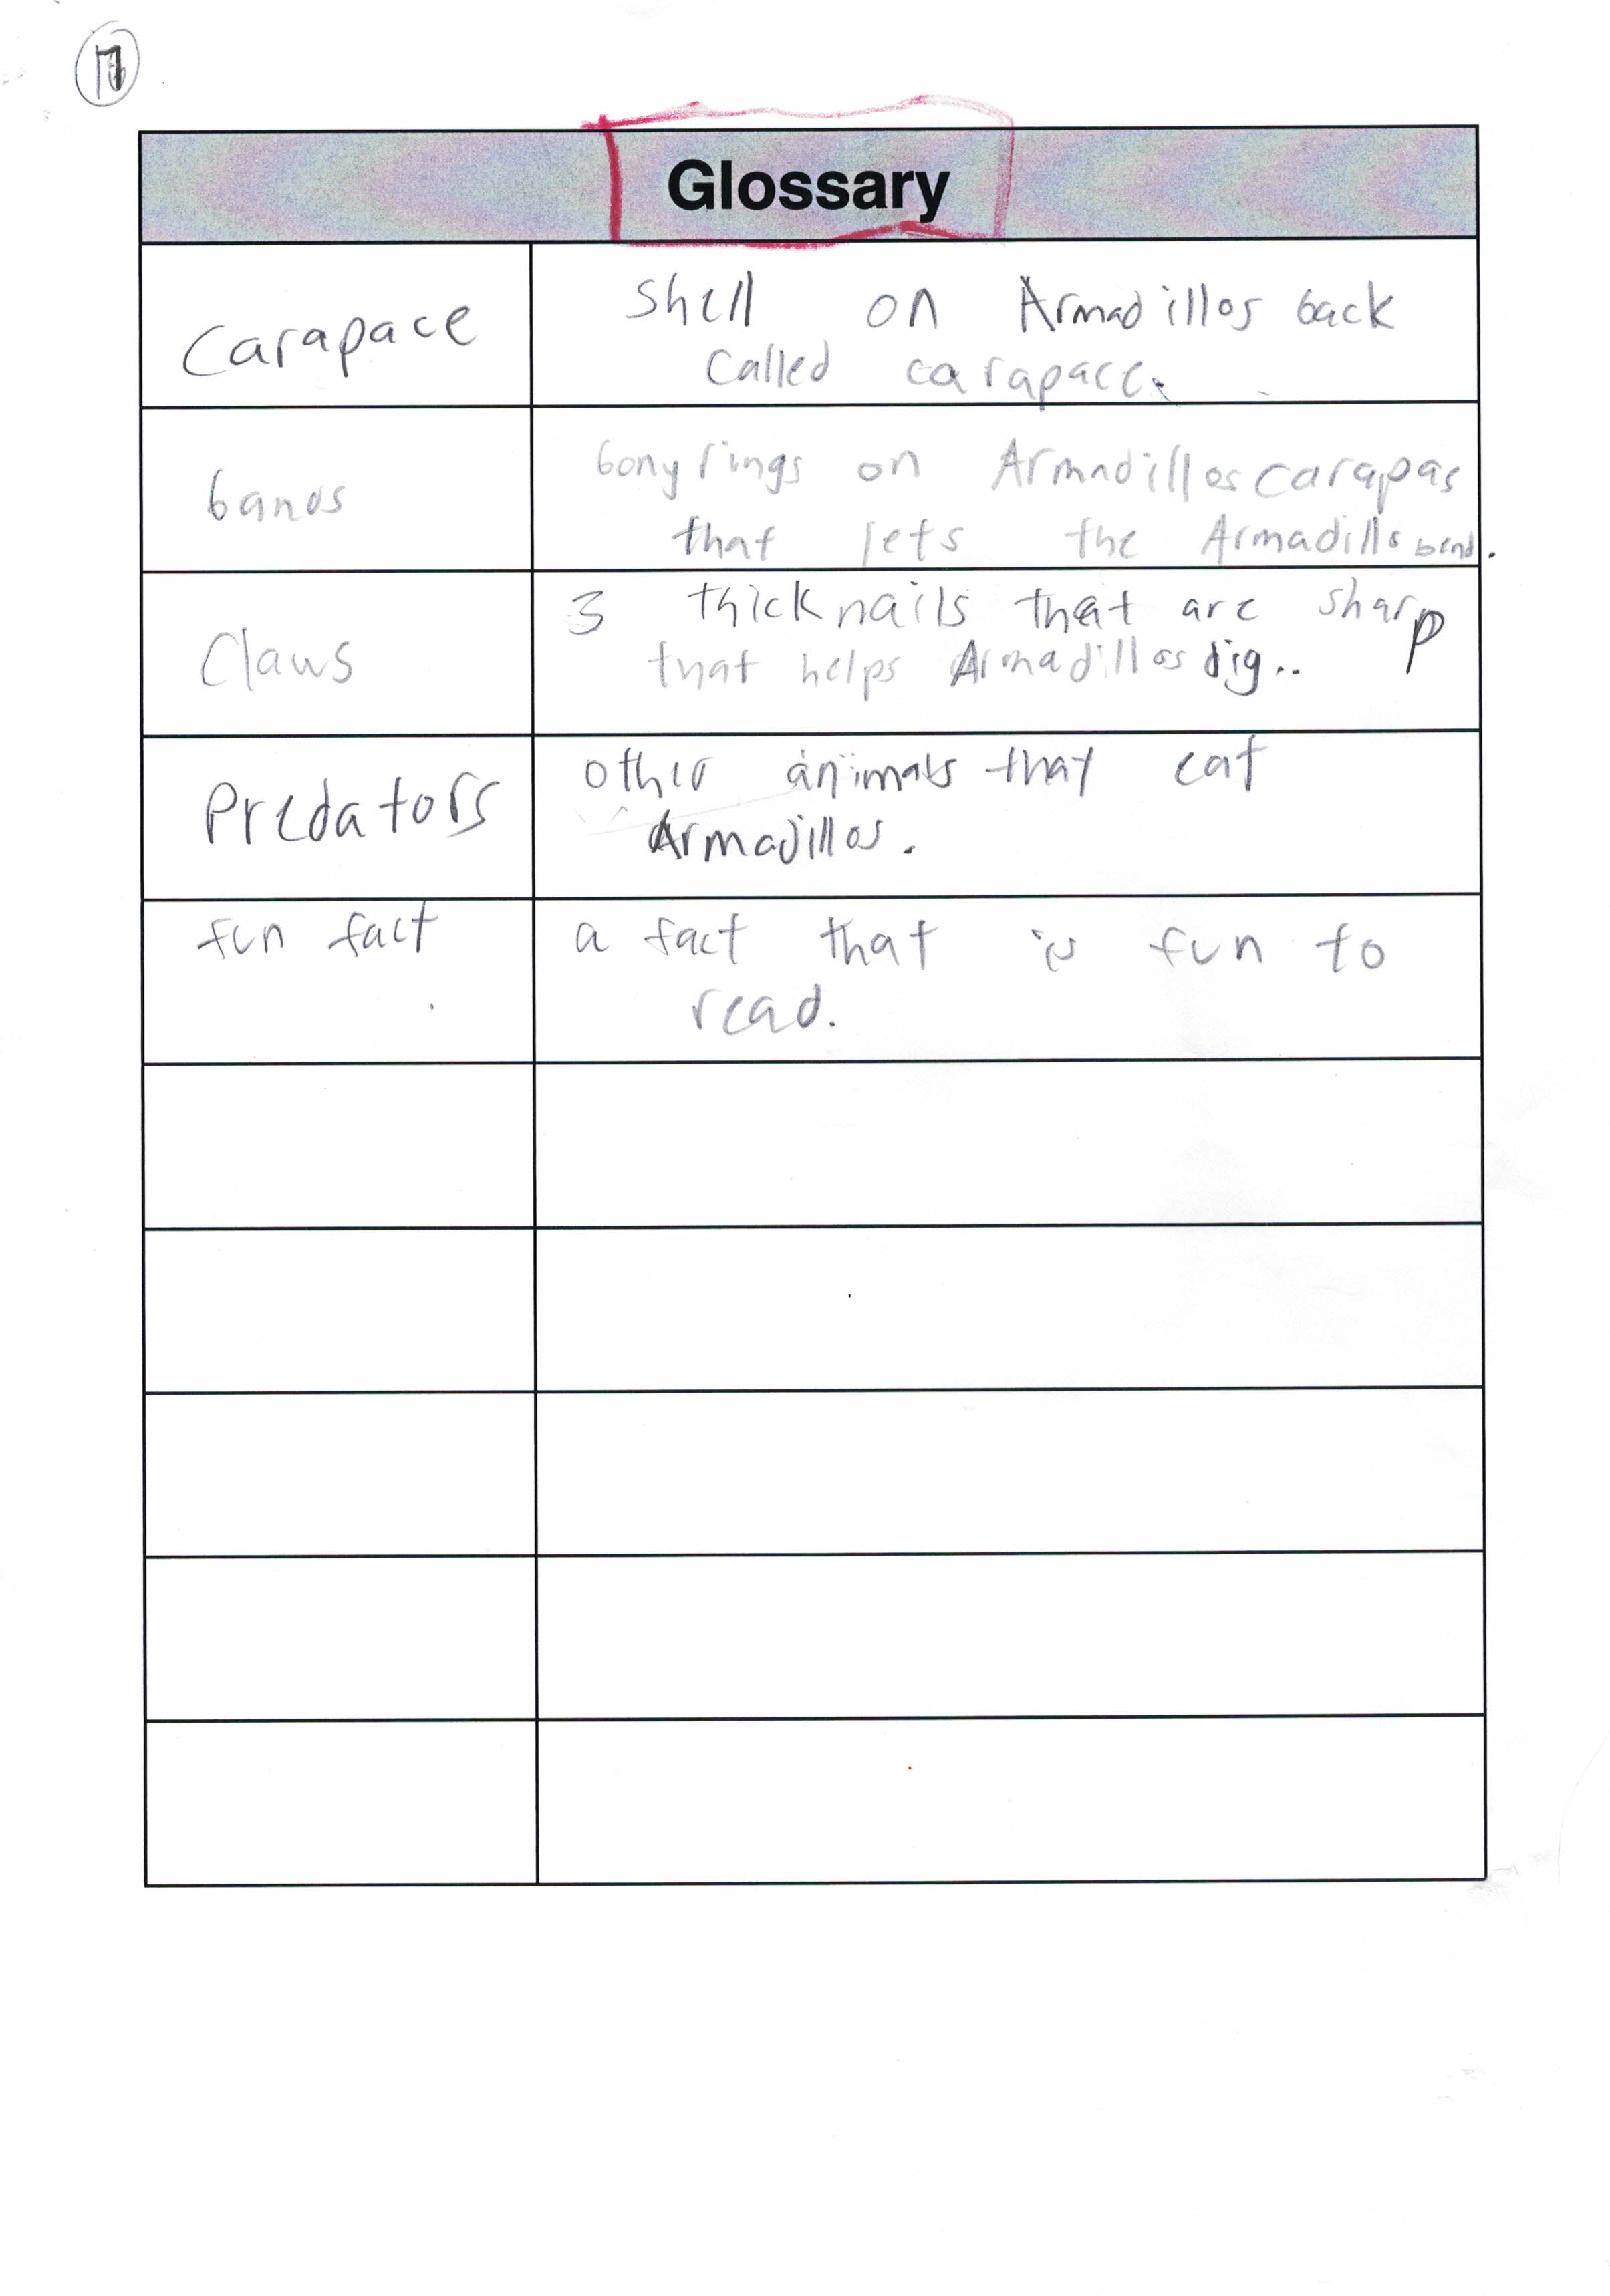 Glossary
Carapace
Shell on Armadillos back
Called carapace.
bands
bony rings on Armadillos carapas
that lets the Armadillo bend.
Claws
3 thick nails that are sharp
that helps Armadillos dig..
Predators
other animals that eat
Armadillos.
fun fact
a fact that is fun to
read.